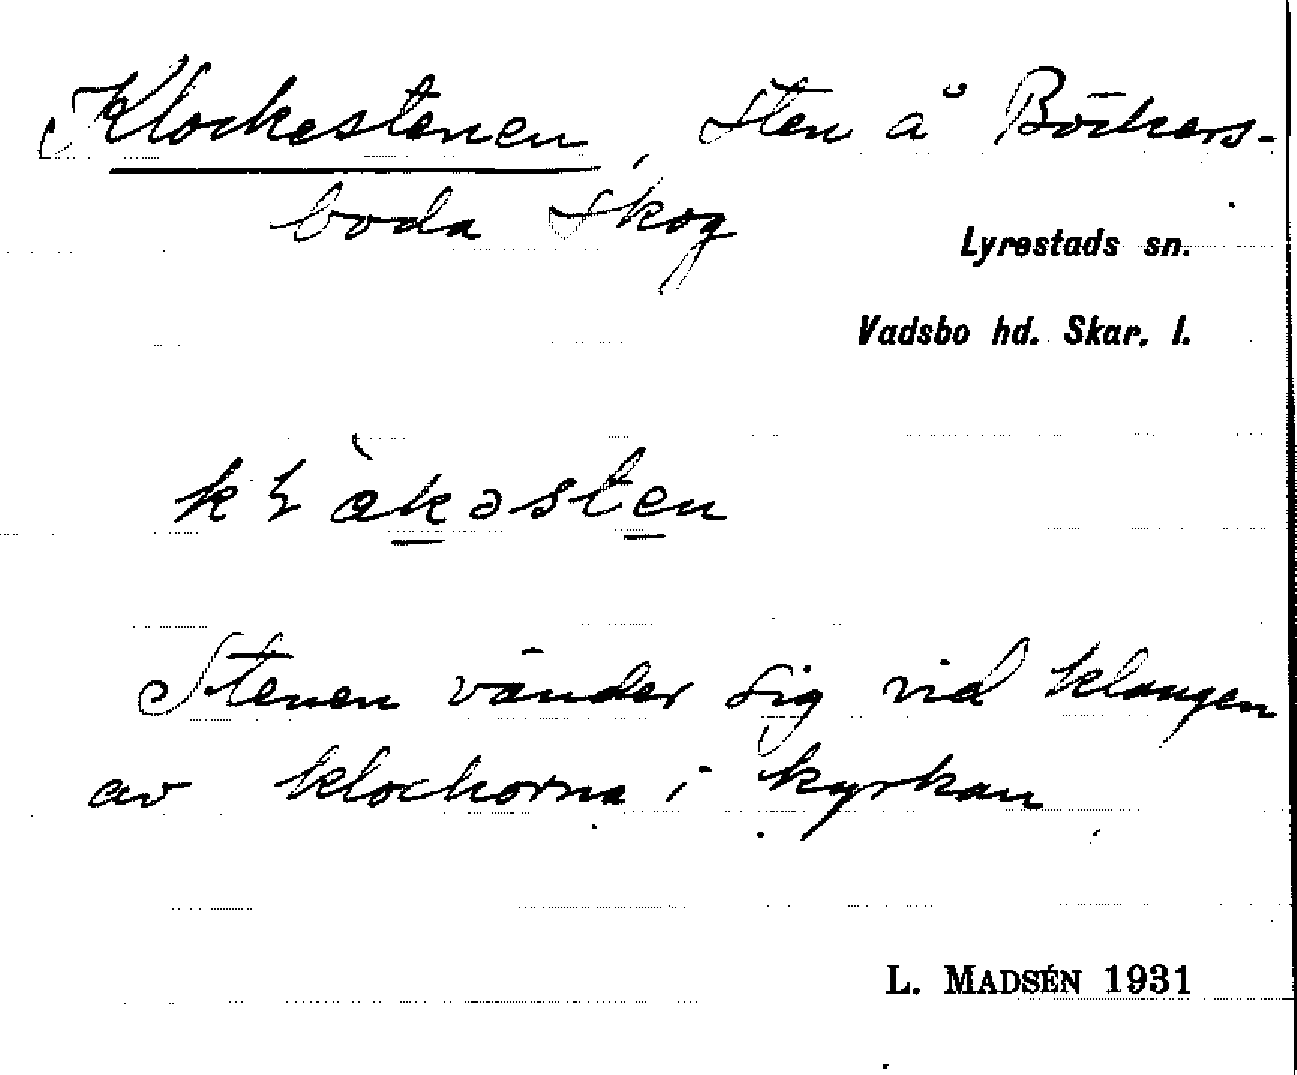 Klockestenen, sten å Böckers-
boda skog
Lyrestads sn.
Vadsbo hd. Skar. l.
Stenen vänder sig vid klangen
av klockorna i kyrkan
L. MADSÉN 1931